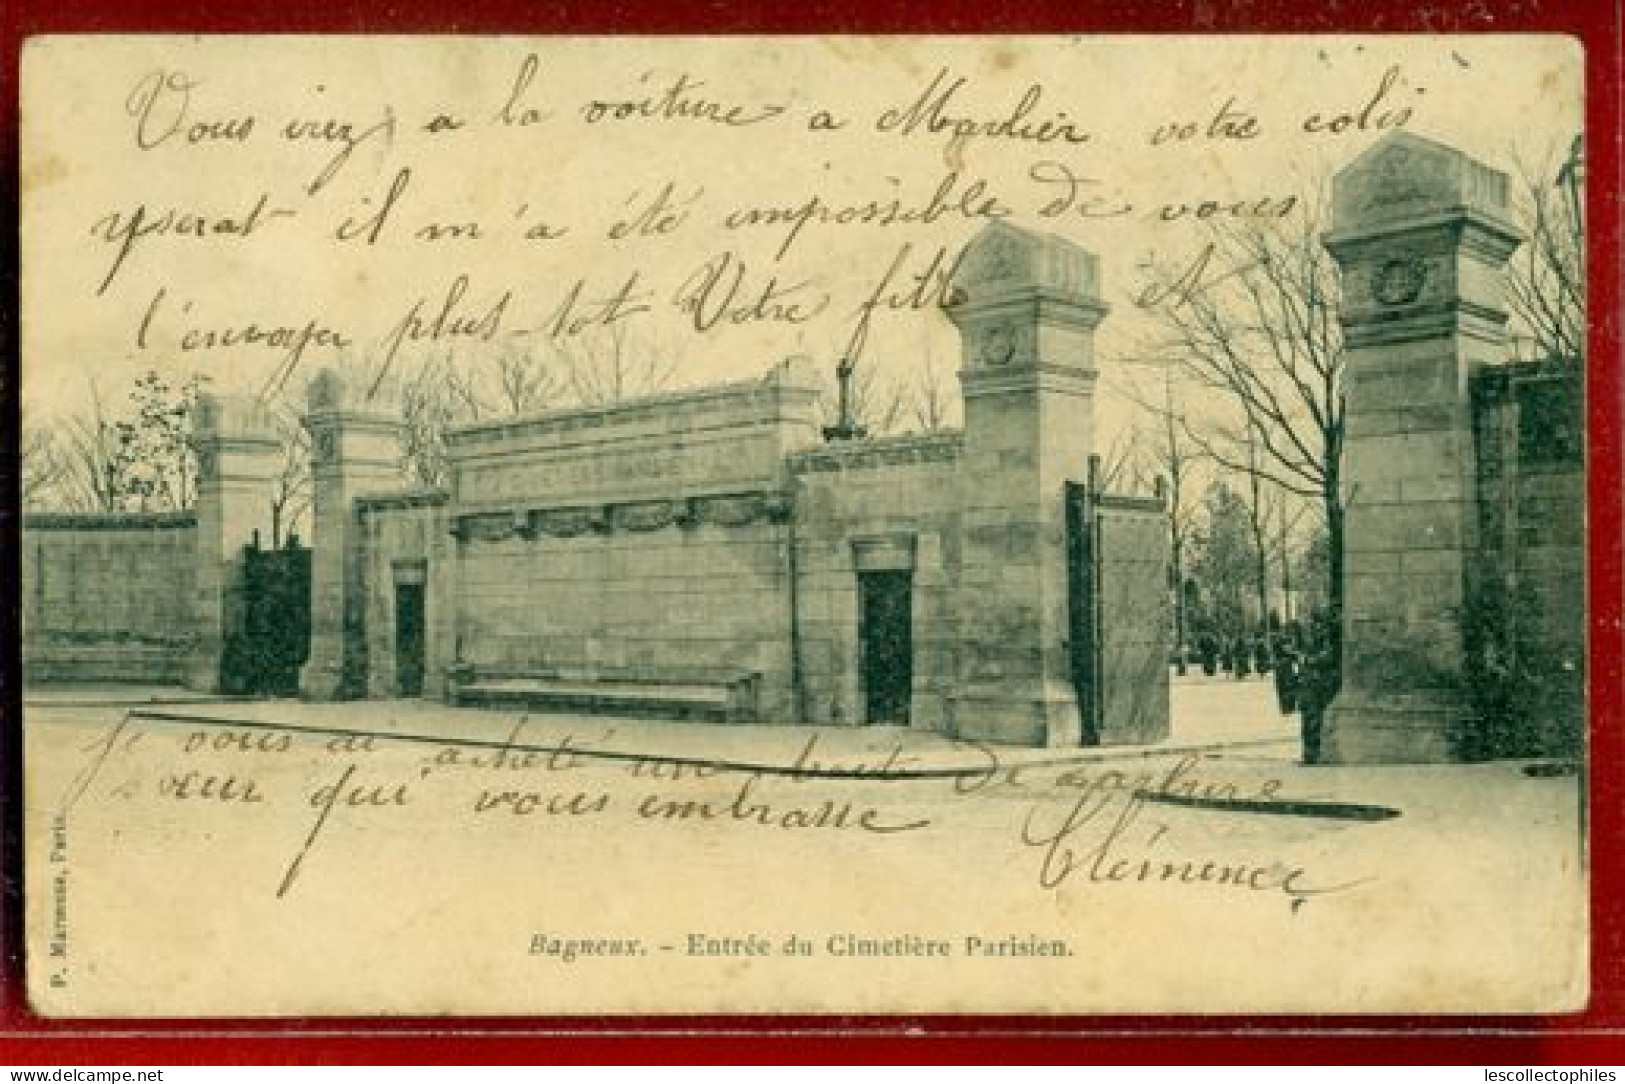 Vous irez a la voiture a Marlier votre colis
yserat il m'a été impossible de vous
l'envoyer plus tot Votre fille et
Je vous ai acheté un boite de
sœur qui vous embrasse
Clémence
Bagneux. - Entrée du Cimetière Parisien.
P. Marmuse, Paris.
delcampe.net
lescollectophiles